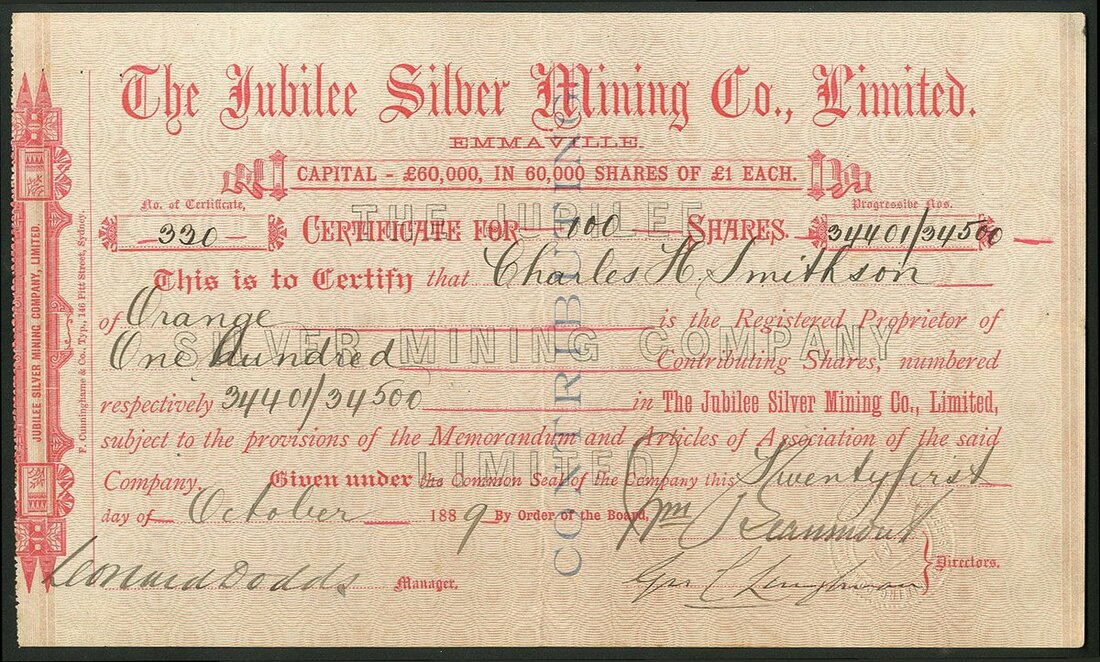 The Jubilee Silver Mining Co., Limited.
EMMAVILLE.
CAPITAL - £60,000, IN 60,000 SHARES OF £1 EACH.
No. of Certificate,
Progressive Nos.
330 CERTIFICATE FOR 100 SHARES. 34401/34500
THE JUBILEE
This is to Certify that Charles H. Smithson
of Orange is the Registered Proprietor of
SILVER MINING COMPANY
One Hundred Contributing Shares, numbered
respectively 34401/34500 in The Jubilee Silver Mining Co., Limited,
subject to the provisions of the Memorandum and Articles of Association of the said
LIMITED
Company. Given under the Common Seal of the Company this Twentyfirst
day of October 1889 By Order of the Board,
Directors.
Leonard Dodds Manager.
CONTRIBUTING
JUBILEE SILVER MINING COMPANY, LIMITED.
F. Cunninghame & Co., Typ., 146 Pitt Street, Sydney.